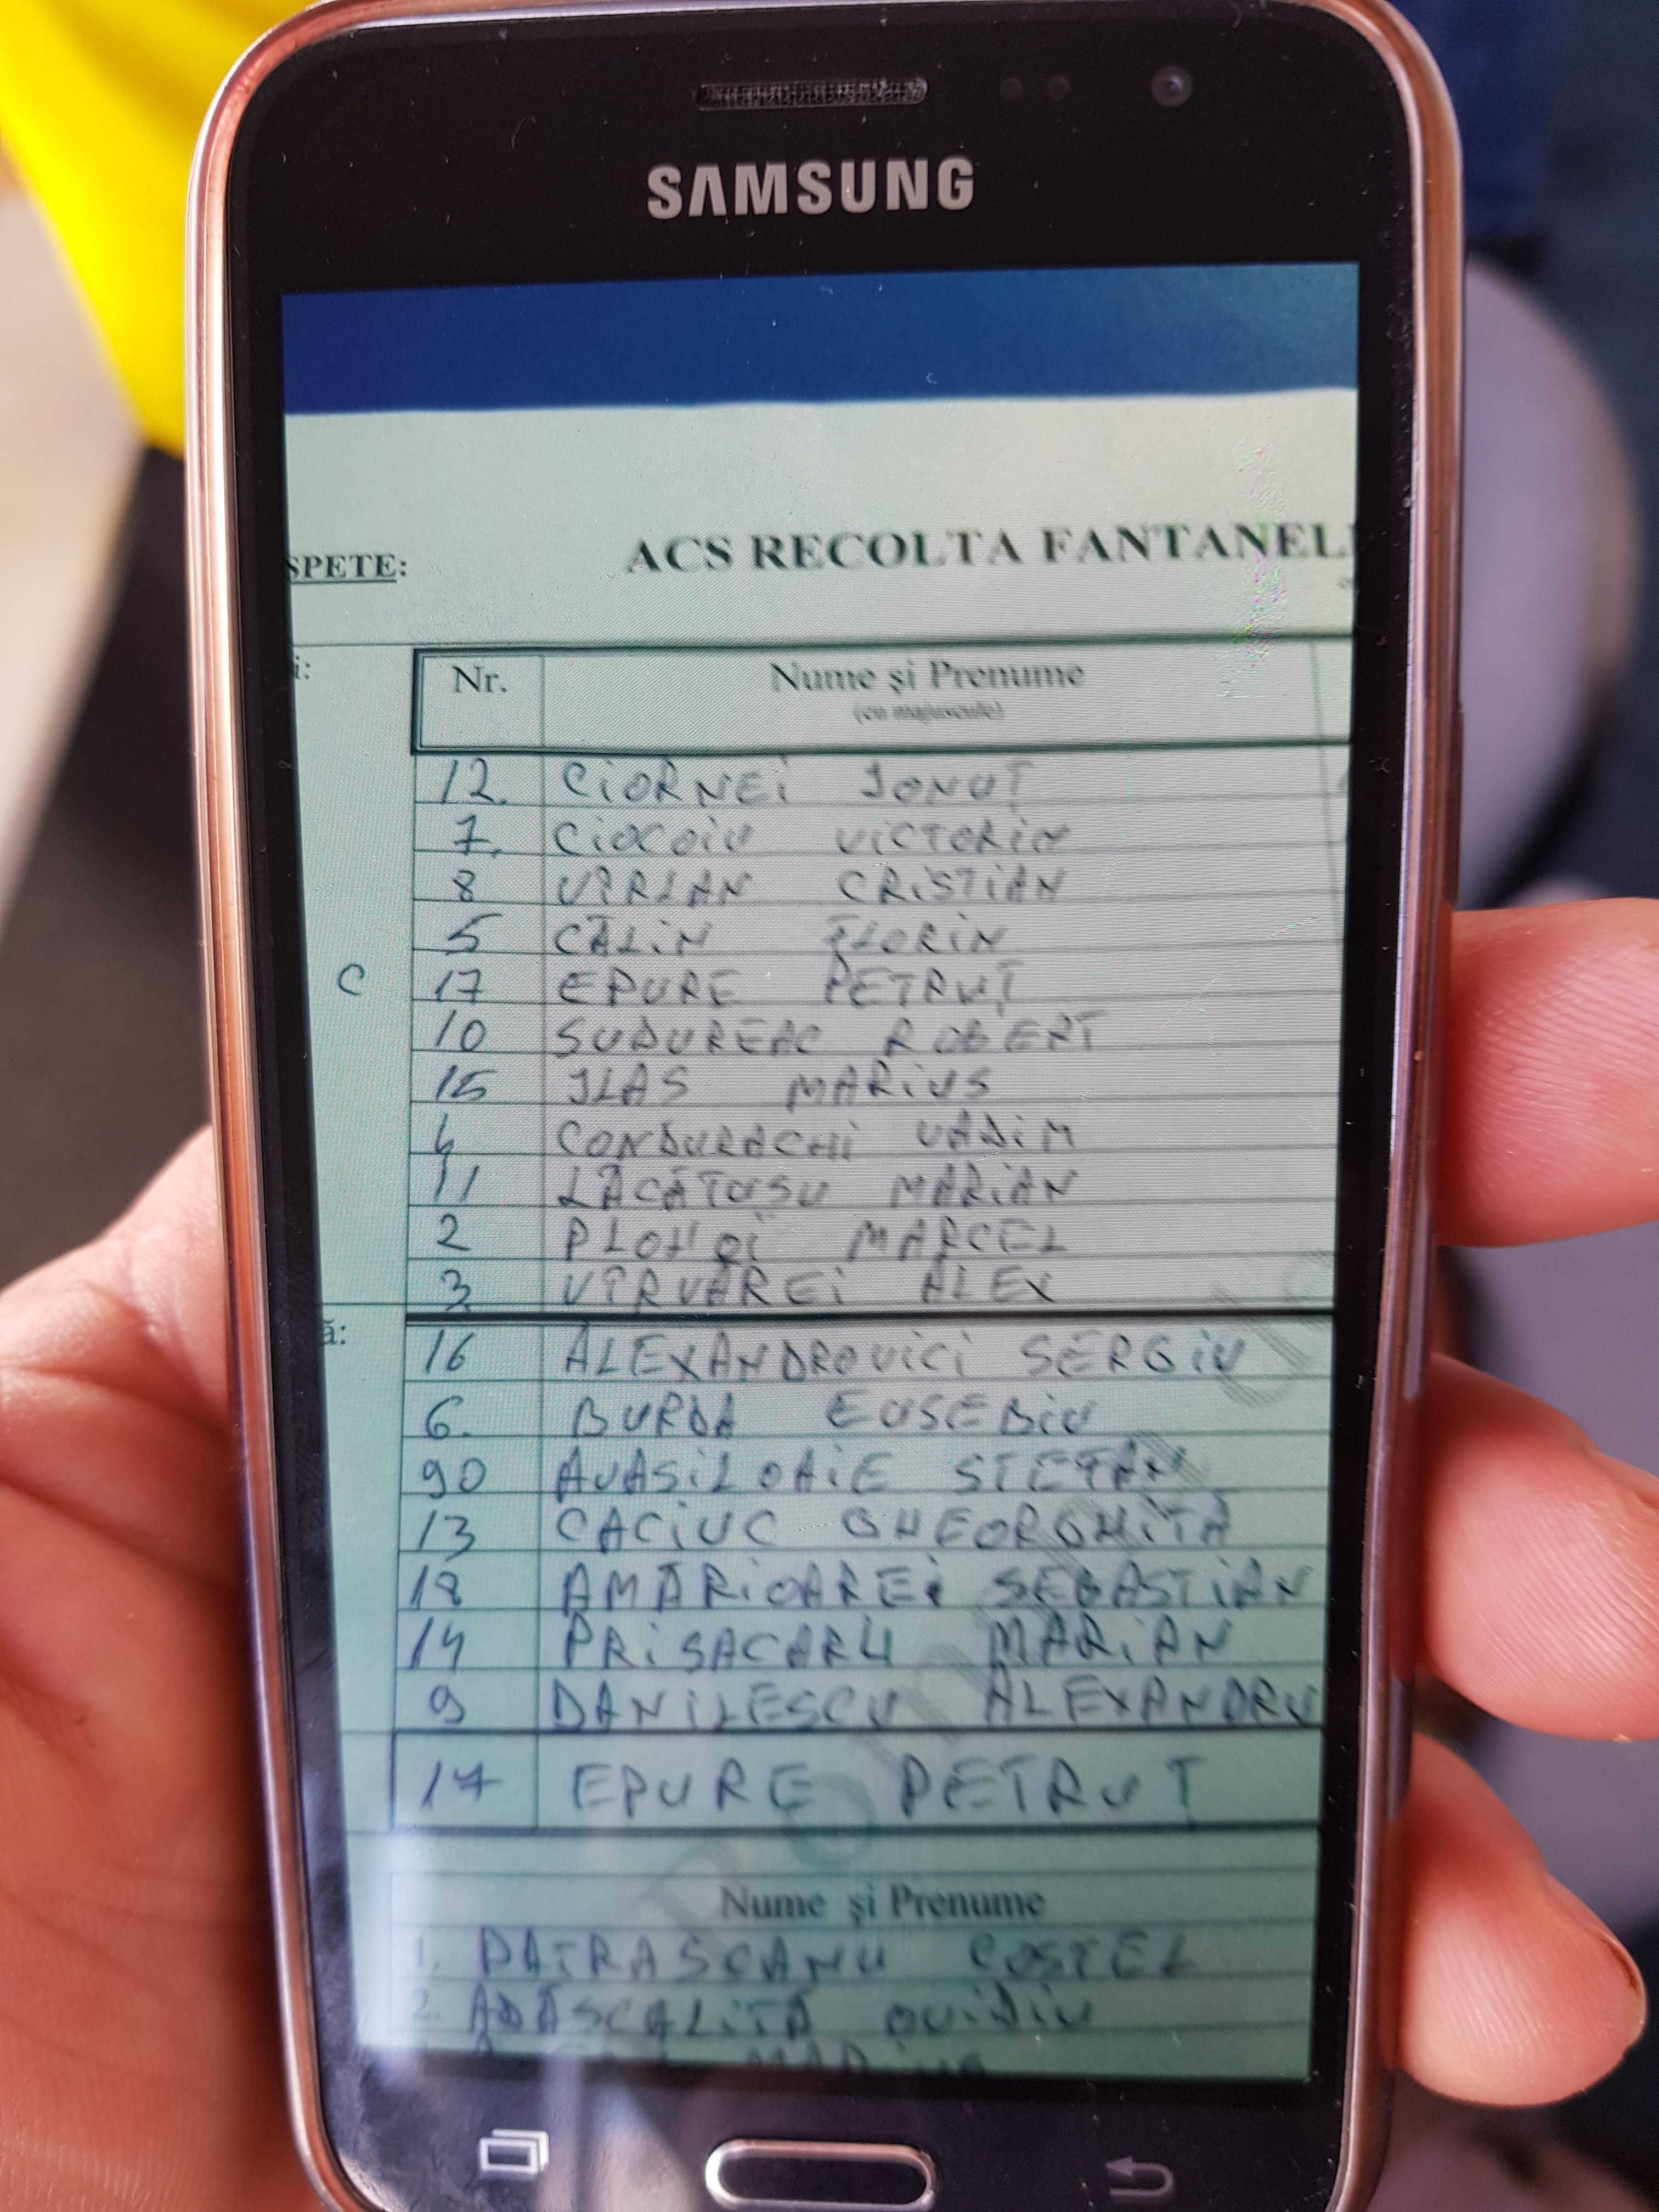 SAMSUNG
SPETE: ACS RECOLTA FANTANEL
i: Nr. Nume și Prenume
(cu majuscule)
12. CIORNEI IONUȚ
7. CIOCOIU VICTORIN
8 VÎRLAN CRISTIAN
5 CĂLIN FLORIN
C 17 EPURE PETRUȚ
10 SUDUREAC ROBERT
15 ILAS MARIUS
4 CONDURACHI VADIM
11 LĂCĂTUSU MARIAN
2 MARCEL
3 VÎRVĂREI ALEX
ă: 16 ALEXANDROVICI SERGIU
6. BURDA EUSEBIU
90 AVASILOAIE STEFAN
13 CACIUC GHEORGHITĂ
18 AMĂRIOAREI SEBASTIAN
14 PRISACARU MARIAN
9 DANILESCU ALEXANDRU
17 EPURE PETRUT
Nume și Prenume
1. PATRASCANU COSTEL
2. ADĂSCĂLITĂ OVIDIU